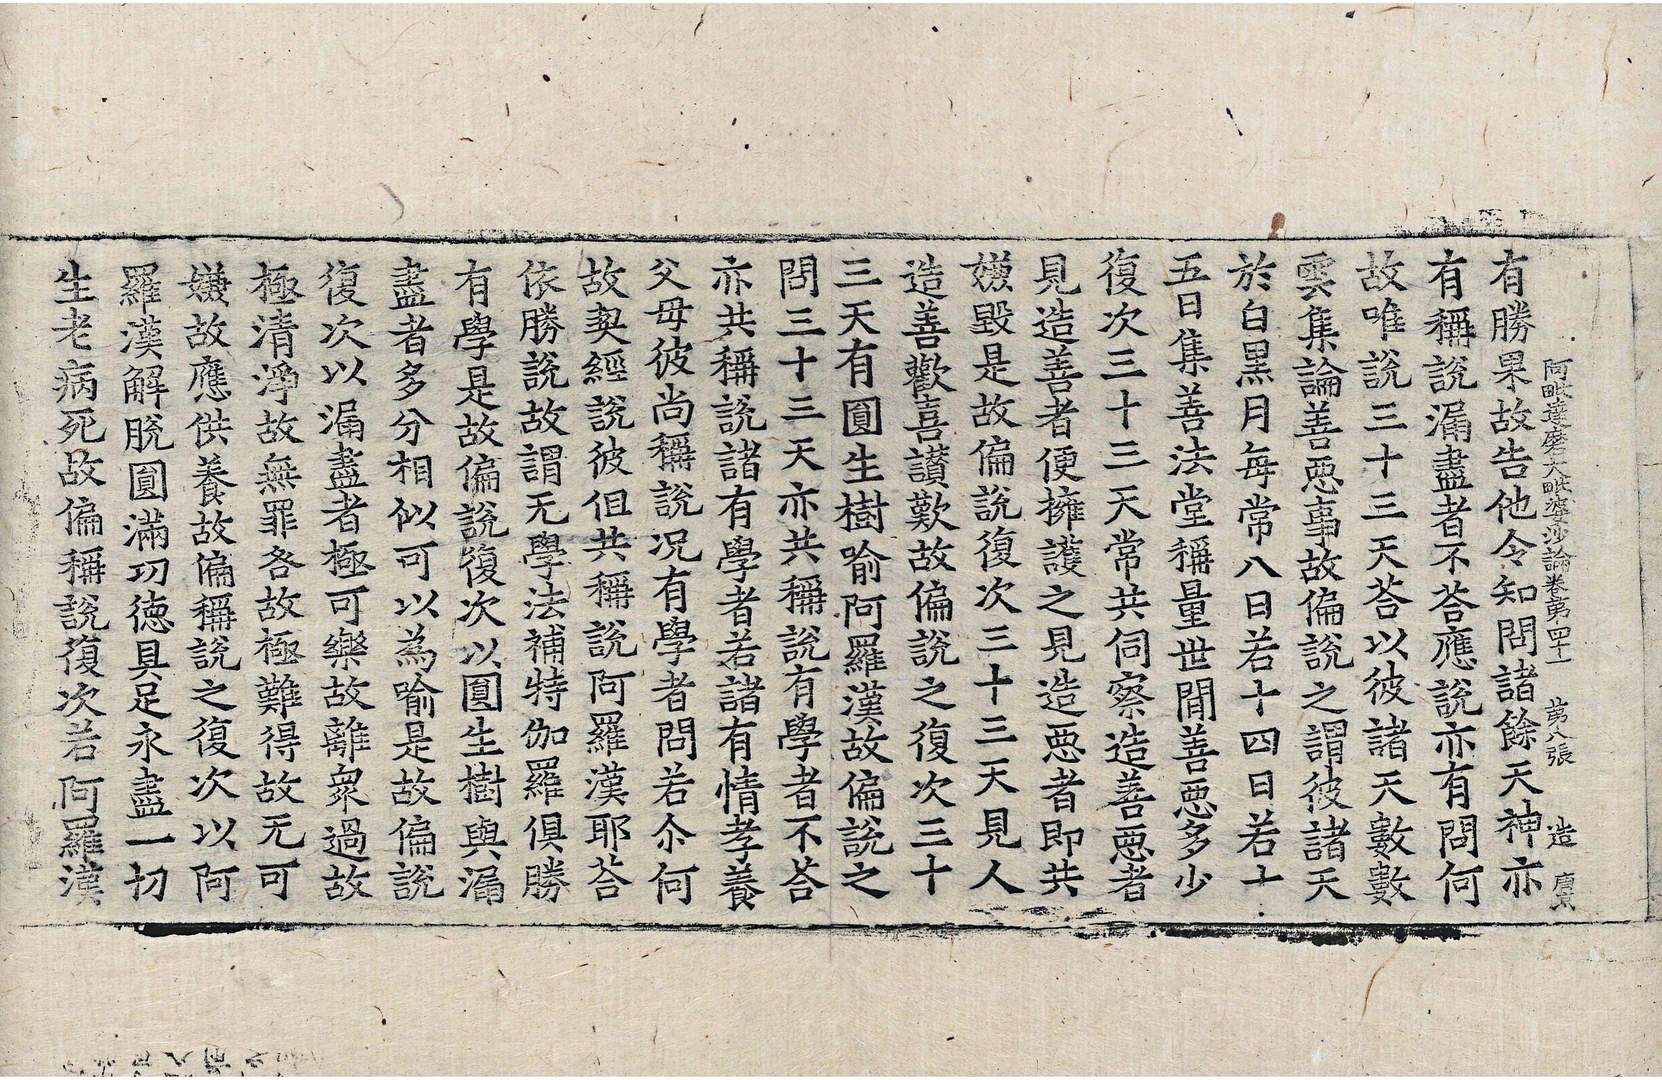 阿毗達磨大毗婆沙論卷第四十一 第八張 造
有勝果故告他令知問諸餘天神亦
有稱說漏盡者不荅應說亦有問何
故唯說三十三天荅以彼諸天數數
雲集論善惡事故偏說之謂彼諸天
於白黑月每常八日若十四日若十
五日集善法堂稱量世閒善惡多少
復次三十三天常共伺察造善惡者
見造善者便擁護之見造惡者即共
嫌毀是故偏說復次三十三天見人
造善歡喜讃歎故偏說之復次三十
三天有圓生樹喻阿羅漢故偏說之
問三十三天亦共稱說有學者不荅
亦共稱說諸有學者若諸有情孝養
父母彼尚稱說况有學者問若尒何
故契經說彼但共稱說阿羅漢耶荅
依勝說故謂无學法補特伽羅俱勝
有學是故偏說復次以圓生樹與漏
盡者多分相似可以為喻是故偏說
復次以漏盡者極可樂故離衆過故
極清淨故無罪咎故極難得故无可
嫌故應供養故偏稱說之復次以阿
羅漢解脫圓滿功德具足永盡一切
生老病死故偏稱說復次若阿羅漢